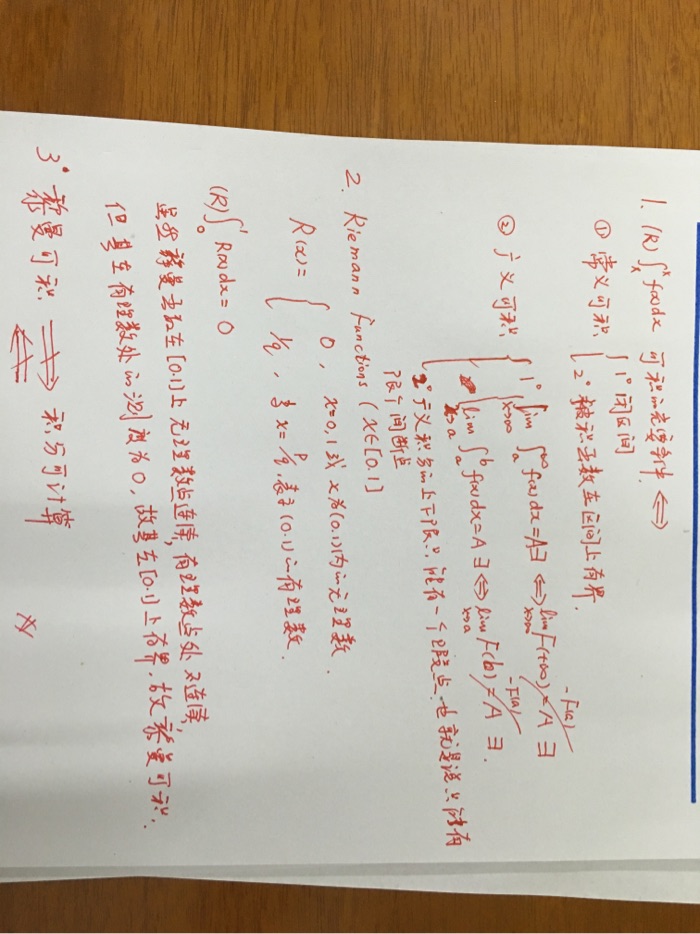 1. (R)∫ₓˣ f(x)dx 可积的充要条件. ⟺
① 常义可积 { 1° 闭区间
2° 被积函数在区间上有界.
② 广义可积 { 1° lim x→∞ ∫ₐ^∞ f(x)dx=A∃ ⟺ lim x→∞ F(+∞) -F(a) = A ∃
lim x→a ∫ₐᵇ f(x)dx=A ∃ ⟺ lim x→a F(b) -F(a) = A ∃.
2° 广义积分的上下限只能有一个瑕点. 也就是说只能有
限个间断点
2. Riemann Functions (x∈[0.1]
R(x)= { 0, x=0,1或 x为(0.1)内的无理数.
1/q, 当 x=p/q, 表示(0.1)的有理数.
(R)∫₀¹ R(x)dx=0
虽然黎曼函数在[0.1]上无理数点连续, 有理数点处不连续,
但其在有理数处的测度为0, 故其在[0.1]上有界. 故黎曼可积.
3° 黎曼可积 积分可计算